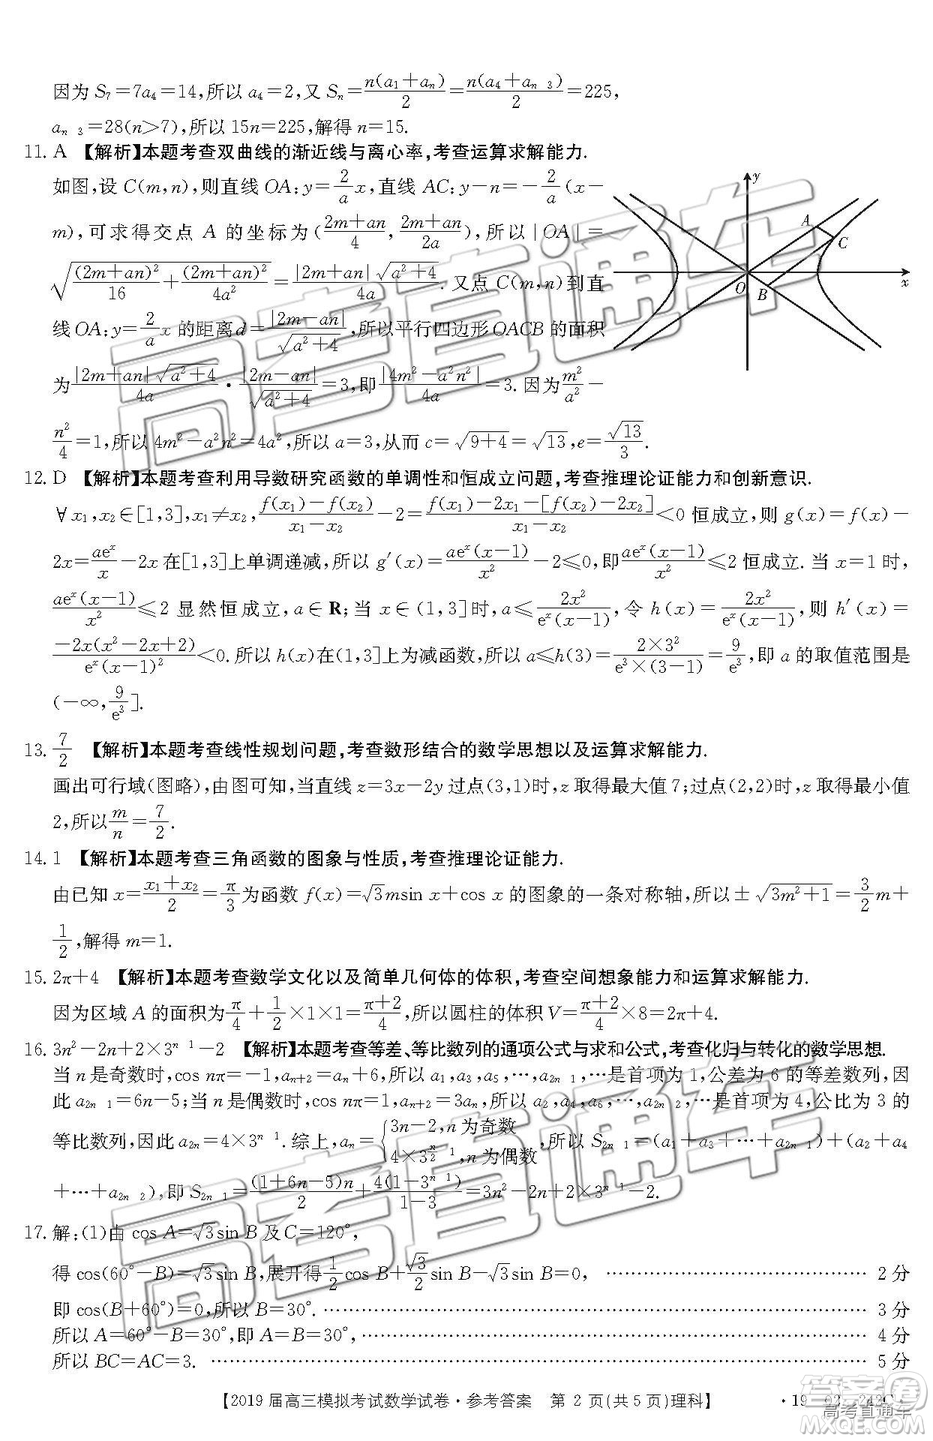 因为 S₇=7a₄=14,所以 a₄=2,又 Sₙ=n(a₁+aₙ)/2=n(a₄+aₙ ₃)/2=225,
aₙ ₃=28(n>7),所以 15n=225,解得 n=15.
11. A 【解析】本题考查双曲线的渐近线与离心率,考查运算求解能力.
如图,设 C(m,n),则直线 OA:y=2/a x,直线 AC:y-n=-2/a(x-
m),可求得交点 A 的坐标为((2m+an)/4,(2m+an)/2a),所以|OA|=
√((2m+an)²/16+(2m+an)²/4a²)=|2m+an|√(a²+4)/4a.又点 C(m,n)到直
线 OA:y=2/a x 的距离 d=|2m-an|/√(a²+4),所以平行四边形 OACB 的面积
为|2m+an|√(a²+4)/4a·|2m-an|/√(a²+4)=3,即|4m²-a²n²|/4a=3.因为m²/a²-
n²/4=1,所以 4m²-a²n²=4a²,所以 a=3,从而 c=√(9+4)=√13,e=√13/3.
y
A
C
O
B
x
12. D 【解析】本题考查利用导数研究函数的单调性和恒成立问题,考查推理论证能力和创新意识.
∀x₁,x₂∈[1,3],x₁≠x₂,(f(x₁)-f(x₂))/(x₁-x₂)-2=(f(x₁)-2x₁-[f(x₂)-2x₂])/(x₁-x₂)<0 恒成立,则 g(x)=f(x)-
2x=aeˣ/x-2x 在[1,3]上单调递减,所以 g′(x)=aeˣ(x-1)/x²-2≤0,即aeˣ(x-1)/x²≤2 恒成立. 当 x=1 时,
aeˣ(x-1)/x²≤2 显然恒成立,a∈R;当 x∈(1,3]时,a≤2x²/eˣ(x-1),令 h(x)=2x²/eˣ(x-1),则 h′(x)=
-2x(x²-2x+2)/eˣ(x-1)²<0.所以 h(x)在(1,3]上为减函数,所以 a≤h(3)=2×3²/e³×(3-1)=9/e³,即 a 的取值范围是
(-∞,9/e³].
13. 7/2 【解析】本题考查线性规划问题,考查数形结合的数学思想以及运算求解能力.
画出可行域(图略),当直线 z=3x-2y 过点(3,1)时,z 取得最大值 7;过点(2,2)时,z 取得最小值
2,所以m/n=7/2.
14. 1 【解析】本题考查三角函数的图象与性质,考查推理论证能力.
由已知 x=(x₁+x₂)/2=π/3为函数 f(x)=√3msin x+cos x 的图象的一条对称轴,所以±√(3m²+1)=3/2m+
1/2,解得 m=1.
15. 2π+4 【解析】本题考查数学文化以及简单几何体的体积,考查空间想象能力和运算求解能力.
因为区域 A 的面积为π/4+1/2×1×1=(π+2)/4,所以圆柱的体积 V=(π+2)/4×8=2π+4.
16. 3n²-2n+2×3ⁿ ¹-2 【解析】本题考查等差、等比数列的通项公式与求和公式,考查化归与转化的数学思想.
当 n 是奇数时,cos nπ=-1,aₙ₊₂=aₙ+6,所以 a₁,a₃,a₅,…,a₂ₙ ₁,…是首项为 1,公差为 6 的等差数列,因
此 a₂ₙ ₁=6n-5;当 n 是偶数时,cos nπ=1,aₙ₊₂=3aₙ,所以 a₂,a₄,a₆,…,a₂ₙ,…是首项为 4,公比为 3 的
等比数列,因此 a₂ₙ=4×3ⁿ ¹.综上,aₙ={3n-2,n 为奇数 4×3^(n/2 1),n 为偶数,所以 S₂ₙ ₁=(a₁+a₃+…+a₂ₙ ₁)+(a₂+a₄
+…+a₂ₙ ₂),即 S₂ₙ ₁=(1+6n-5)n/2+4(1-3ⁿ ¹)/(1-3)=3n²-2n+2×3ⁿ ¹-2.
17. 解:(1)由 cos A=√3sin B 及 C=120°,
得 cos(60°-B)=√3sin B,展开得1/2cos B+√3/2sin B-√3sin B=0, …… 2 分
即 cos(B+60°)=0,所以 B=30°. …… 3 分
所以 A=60°-B=30°,即 A=B=30°, …… 4 分
所以 BC=AC=3. …… 5 分
【2019 届高三模拟考试数学试卷·参考答案 第 2 页(共 5 页)理科】
高考直通车
高考直通车
高考直通车